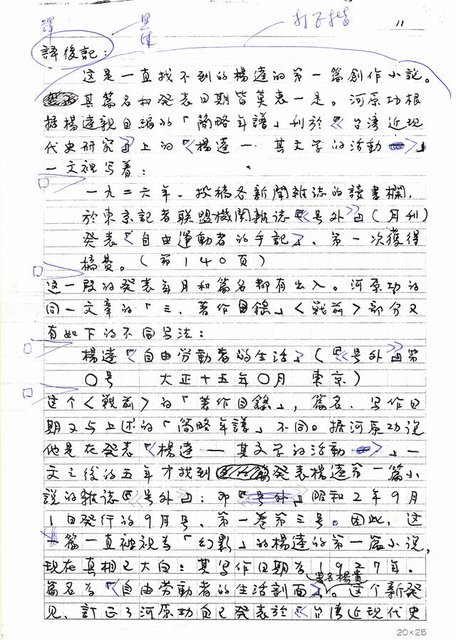 譯 黑体 打字楷 11
譯後記:
這是一直找不到的楊逵的第一篇創作小說。
其篇名和發表日期皆莫衷一是。河原功根
據楊逵親自編的「簡略年譜」刊於《台湾近現
代史研究》上的《楊逵——其文学的活動》」
一文裡写着:
一九二六年、投稿各新聞雜誌的讀書欄,
於東京記者联盟機関雜誌《号外》(月刊)
発表《自由運動者的手記》、第一次獲得
稿費。(第140頁)
這一段的発表年月和篇名都有出入。河原功的
同一文章的「三、著作目錄」〈戦前〉部分又
有如下的不同写法:
楊逵《自由労動者的生活》(《号外》第
〇号 大正十五年〇月 東京)
這个〈戦前〉的「著作目錄」,篇名、写作日
期又与上述的「簡略年譜」不同。據河原功說
他是在発表《楊逵——其文学的活動》一
文之後的五年才找到発表楊逵第一篇小
說的雜誌《号外》:即《号外》昭和2年9月
1日発行的9月号、第一巻第三号。因此,這
一篇一直被視為「幻影」的楊逵的第一篇小說,
現在真相已大白:其写作日期為1927年。
篇名為《自由労働者的生活剖面》。這个新発
見、訂正了河原功自己発表於《台湾近現代史
20×25